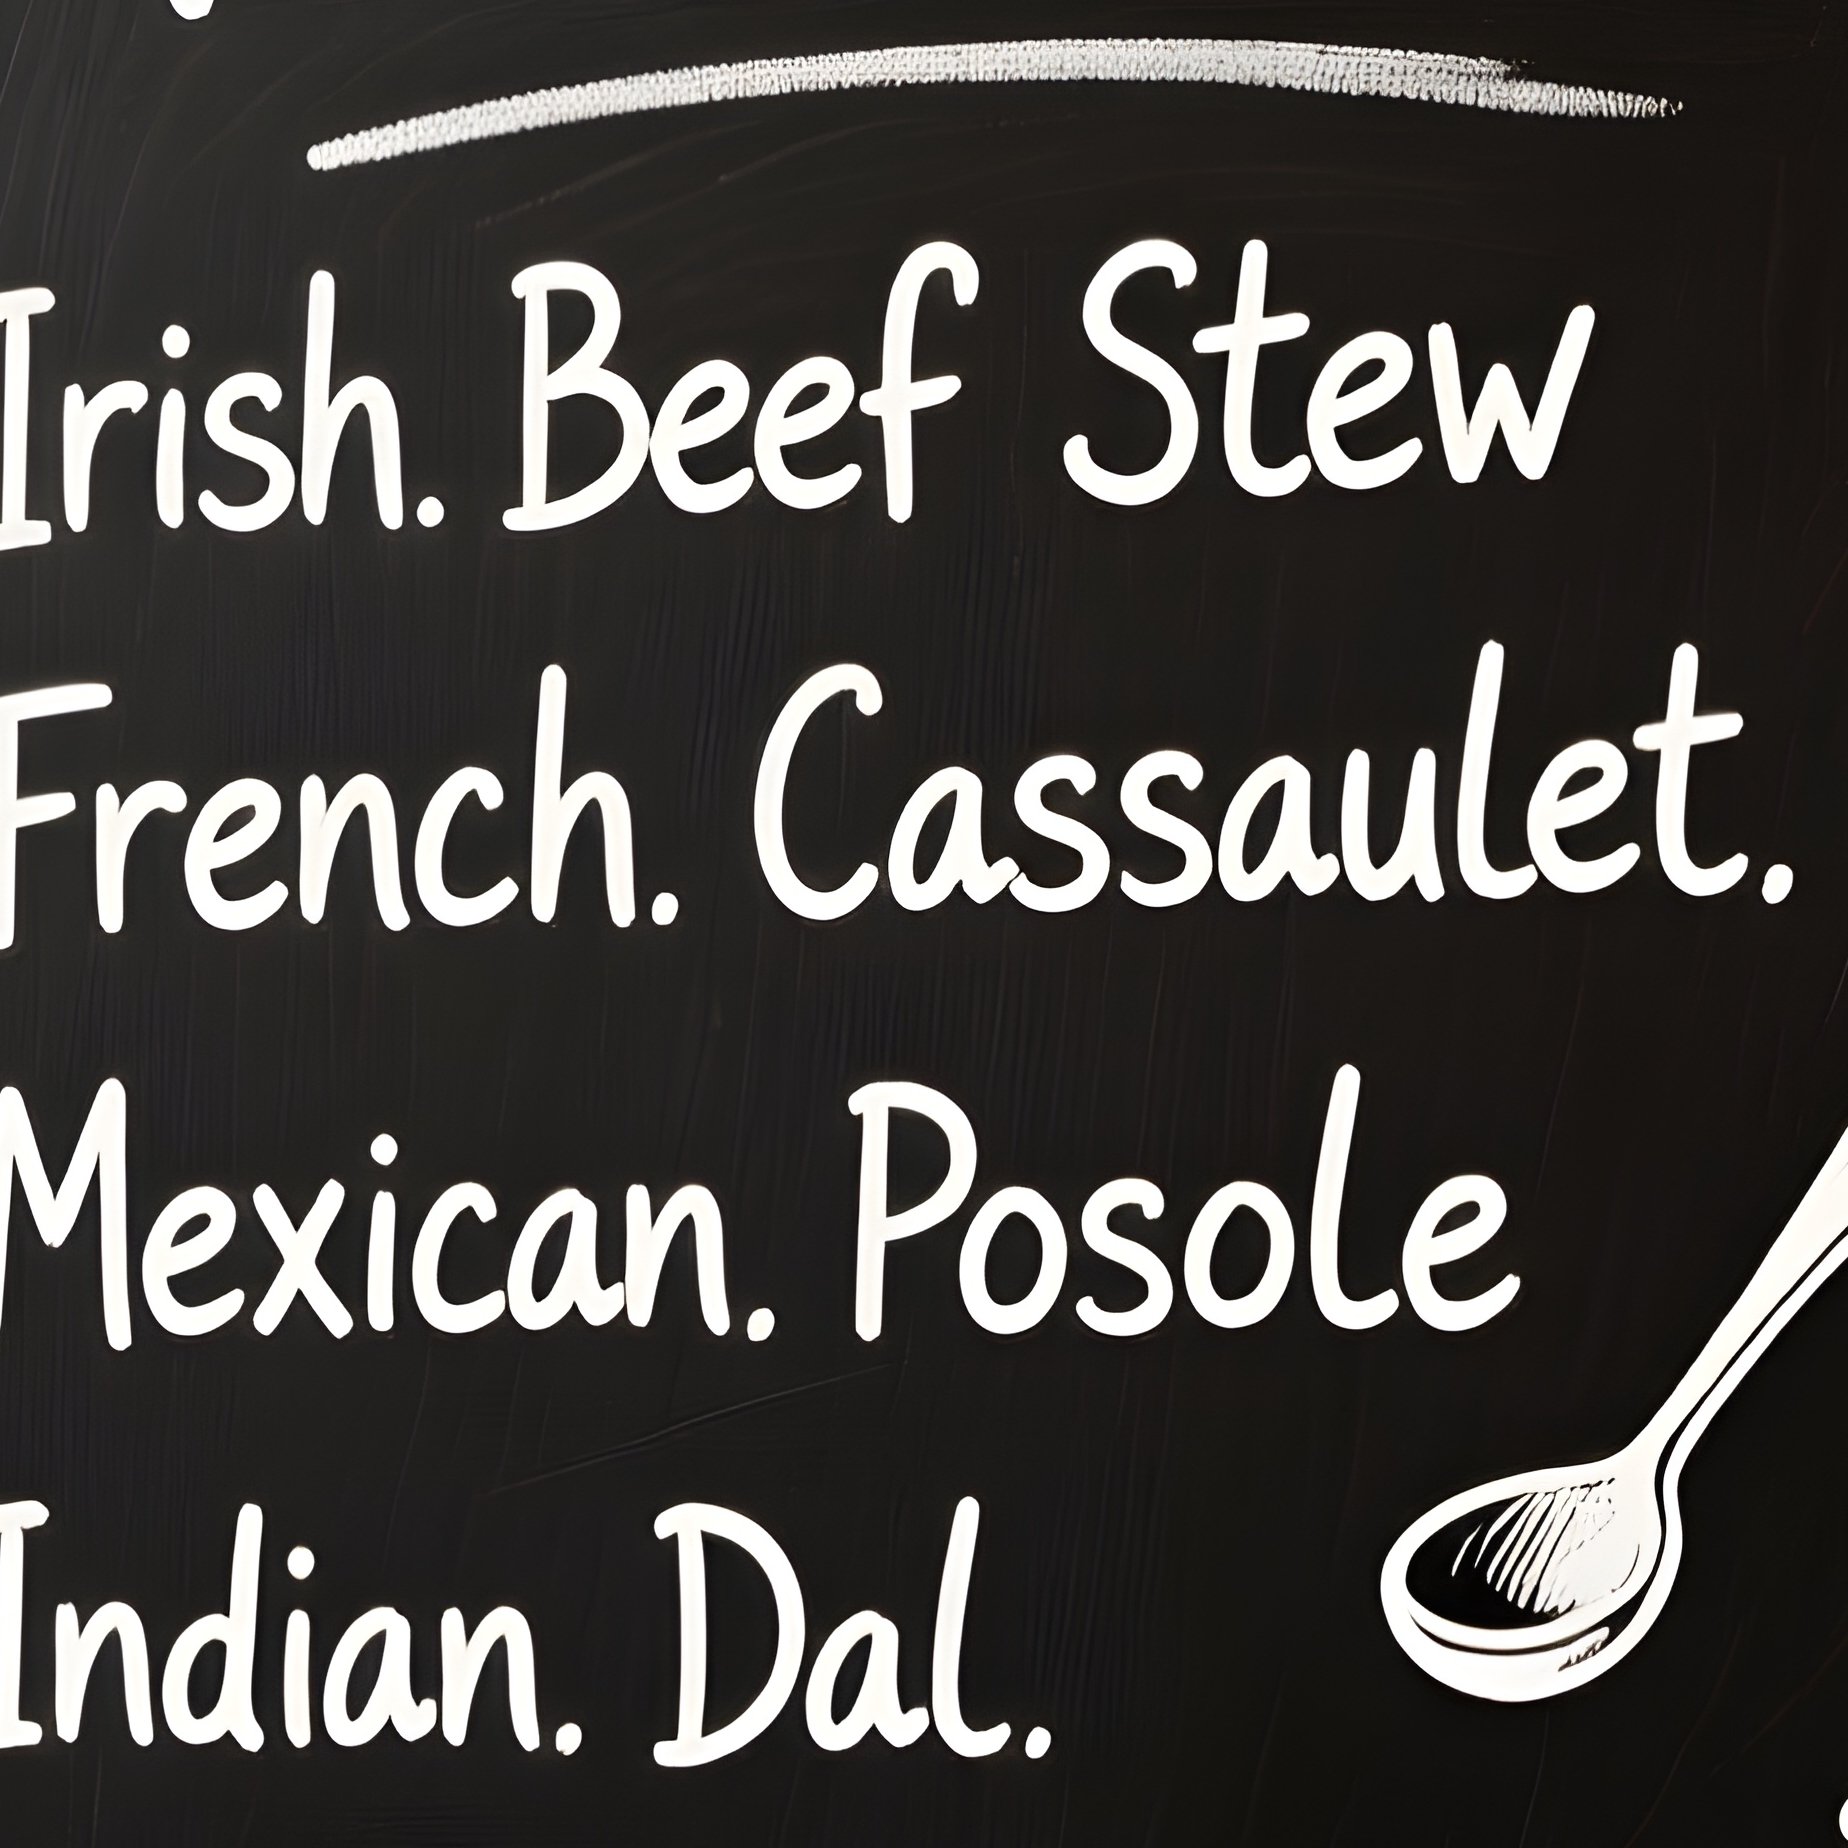 Irish. Beef Stew
French. Cassaulet.
Mexican. Posole
Indian. Dal.